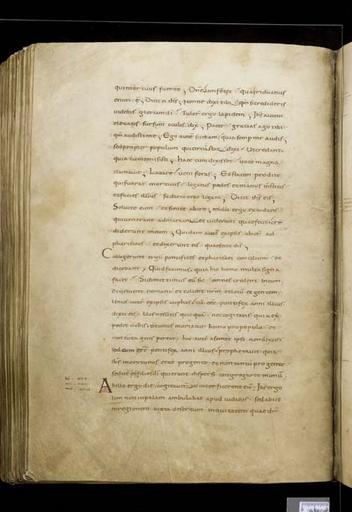 mortuus fuerat; Dñe iam fetet quatriduanus
enim ē; Dicit ei ihs nonne dixi tibi qm̄ si credideris
videbis gloriam di; Tulerunt ergo lapidem; Ihs autem
elevatis sursum oculis dixit; Pater gratias ago tibi
qm̄ audisti me; Ego autem sciebam quia semper me audis
sed propter populum qui circumstat dixi; Ut credant
quia tu me misisti; haec cum dixisset voce magna
clamavit; Lazare veni foras; Et statim prodiit
qui fuerat mortuus ligatus pedes et manus institis
et facies illius sudario erat ligata; Dicit ihs eis
Solvite eum et sinite abire; multi ergo ex iudeis
qui venerant ad mariam et viderant quae fecit cre
diderunt in eum; Quidam autem ex ipsis abierunt ad
phariseos et dixerunt eis quae fecit ihs
Collegerunt ergo pontifices et pharisei concilium et
dicebant; Quid facimus quia hic homo multa signa
facit; Si dimittimus eum sic omnes credent in eum
Et venient romani et tollent nrm locum et gentem
Unus autem ex ipsis caiphas cum esset pontifex anni illius
dixit eis; Vos nescitis quicquam nec cogitatis quia ex
pedit nobis ut unus moriatur homo pro populo et
non tota gens pereat; hoc autem a semet ipso non dixit
sed cum esset pontifex anni illius prophetavit quia
ihs moriturus erat pro gente et non tantum pro gente
sed ut filios di qui erant dispersi congregaret in unum
Ab illo ergo die cogitaverunt ut interficerent eum; Ihs ergo
iam non in palam ambulabat apud iudaeos sed abiit
in regionem iuxta desertum in civitatem quae di